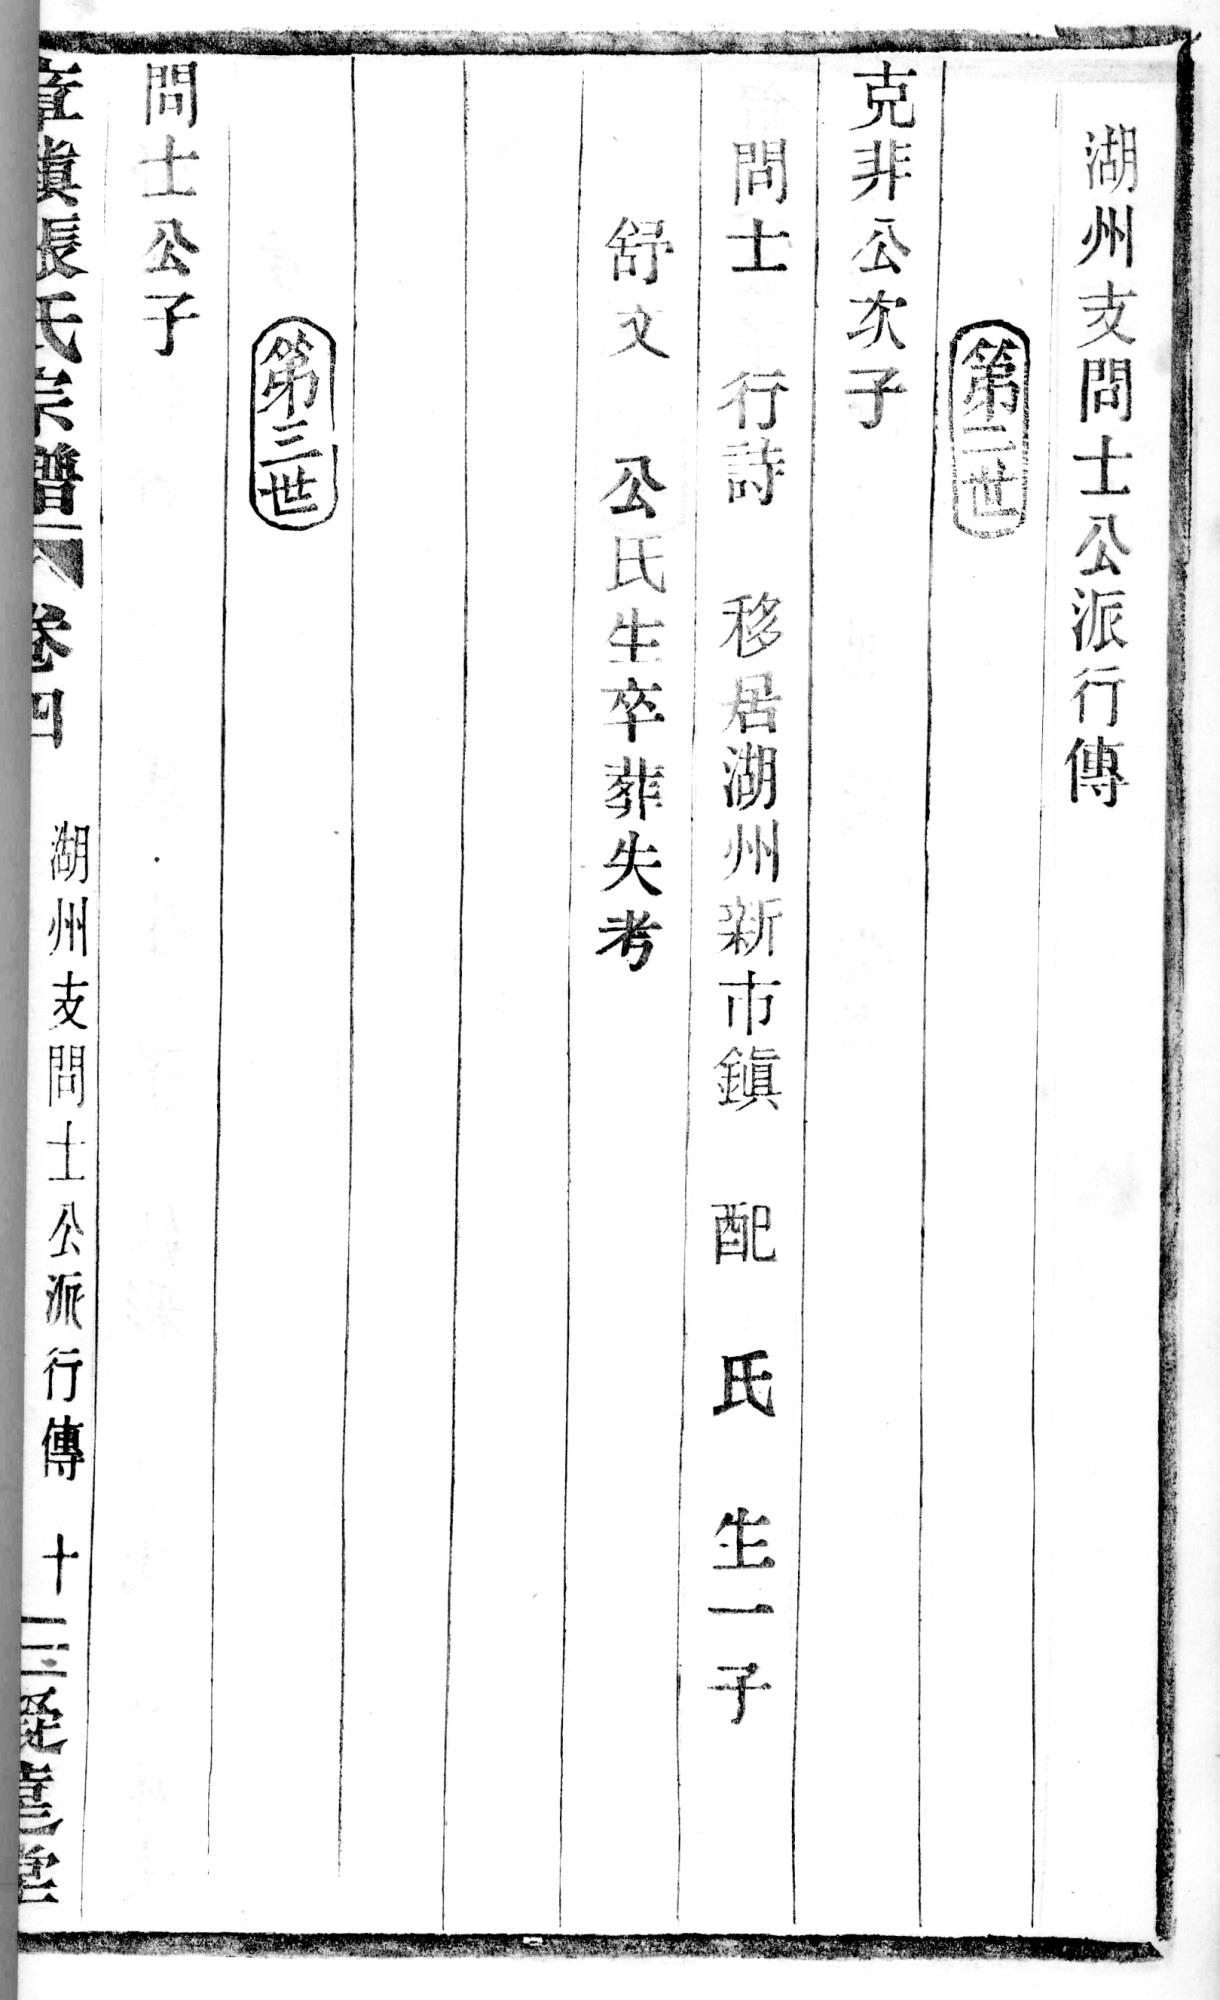 湖州支問士公派行傳
第二世
克非公次子
問士 行詩 移居湖州新市鎭 配 氏 生一子
舒文 公氏生卒葬失考
第三世
問士公子
章鎭張氏宗譜 卷四 湖州支問士公派行傳 十